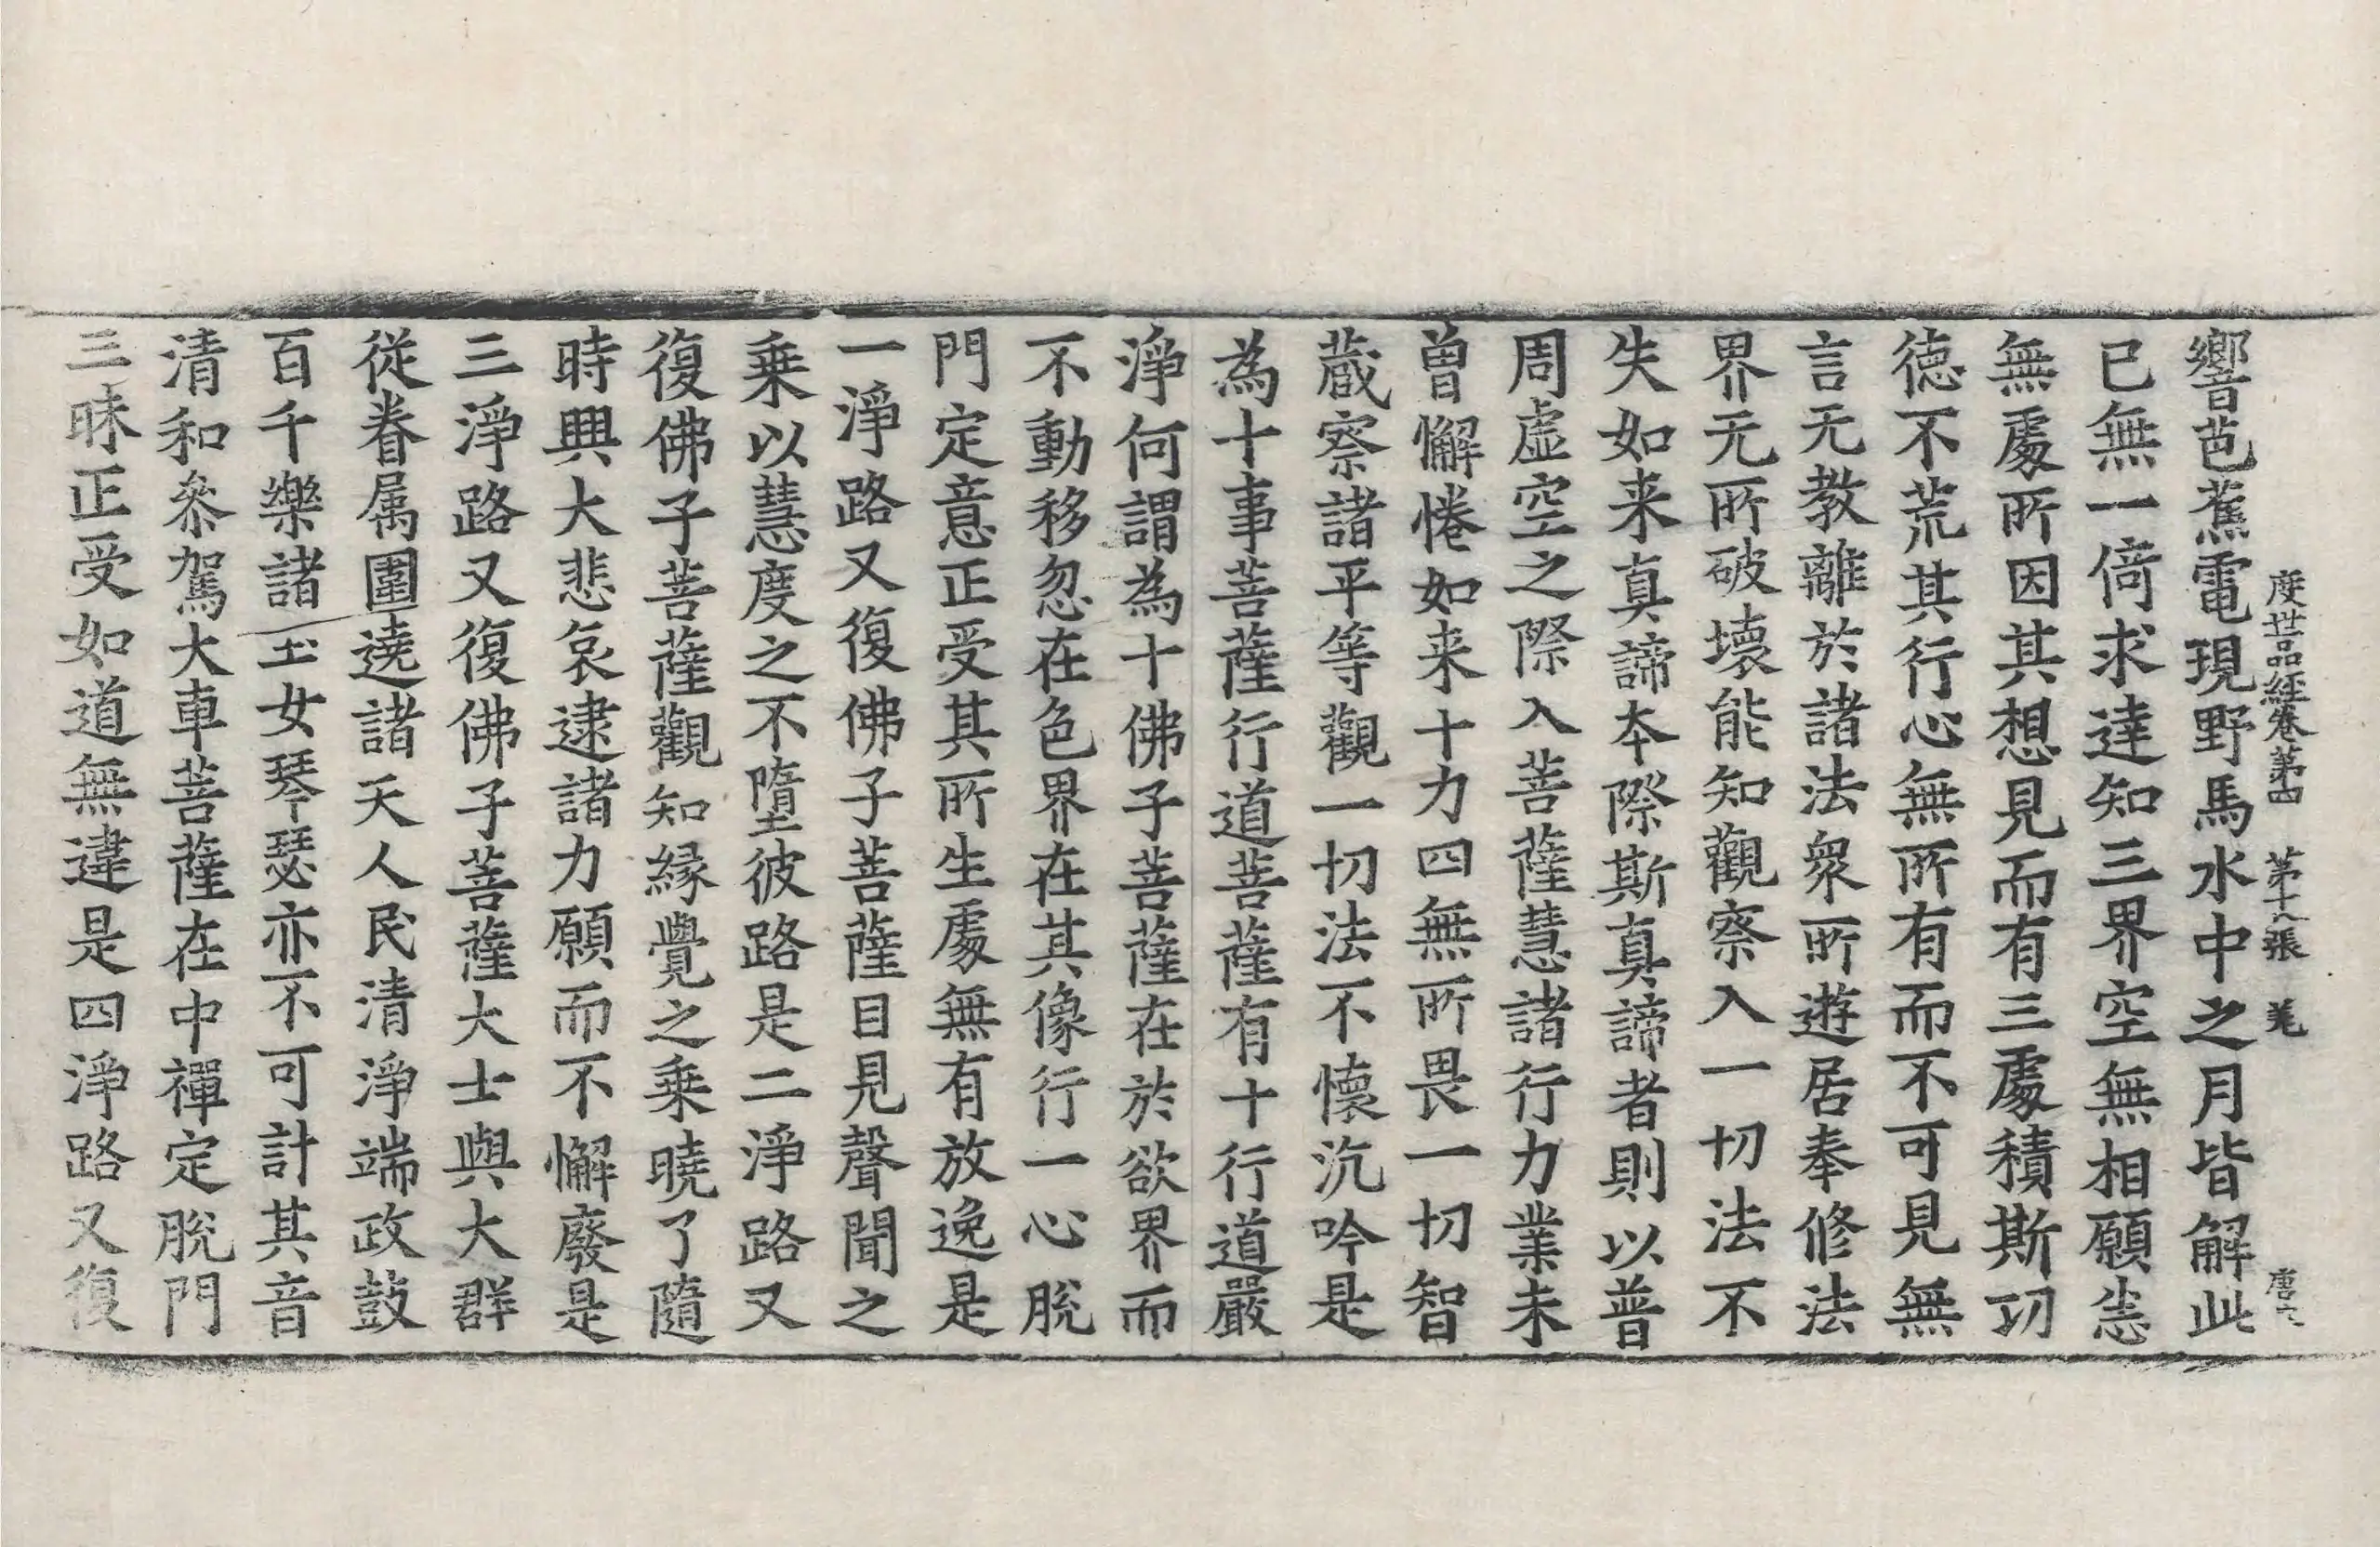 度世品經卷第四 第十八張 羌
響芭蕉電現野馬水中之月皆解此
已無一倚求達知三界空無相願恚
無處所因其想見而有三處積斯功
德不荒其行心無所有而不可見無
言无教離於諸法衆所遊居奉修法
界无所破壞能知觀察入一切法不
失如来真諦本際斯真諦者則以普
周虛空之際入菩薩慧諸行力業未
曾懈惓如来十力四無所畏一切智
蔵察諸平等觀一切法不懷沉吟是
為十事菩薩行道菩薩有十行道嚴
淨何謂為十佛子菩薩在於欲界而
不動移忽在色界在其像行一心脫
門定意正受其所生處無有放逸是
一淨路又復佛子菩薩目見聲聞之
乗以慧度之不墮彼路是二淨路又
復佛子菩薩觀知縁覺之乗曉了隨
時興大悲哀逮諸力願而不懈廢是
三淨路又復佛子菩薩大士與大群
從眷属圍遶諸天人民清淨端政鼓
百千樂諸玉女琴瑟亦不可計其音
清和叅駕大車菩薩在中禪定脫門
三昧正受如道無違是四淨路又復